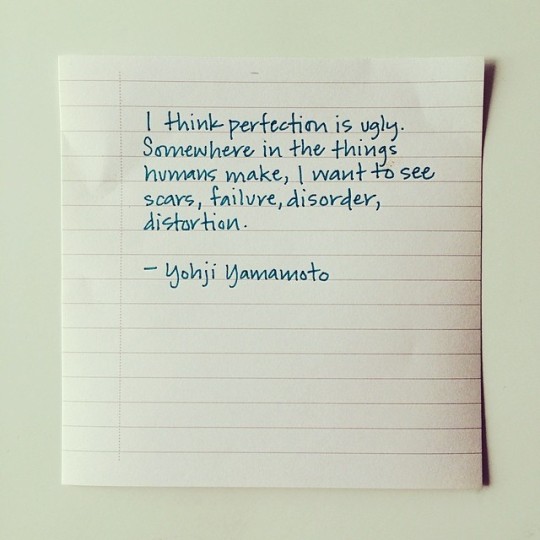 I think perfection is ugly.
Somewhere in the things
humans make, I want to see
scars, failure, disorder,
distortion.
– Yohji Yamamoto